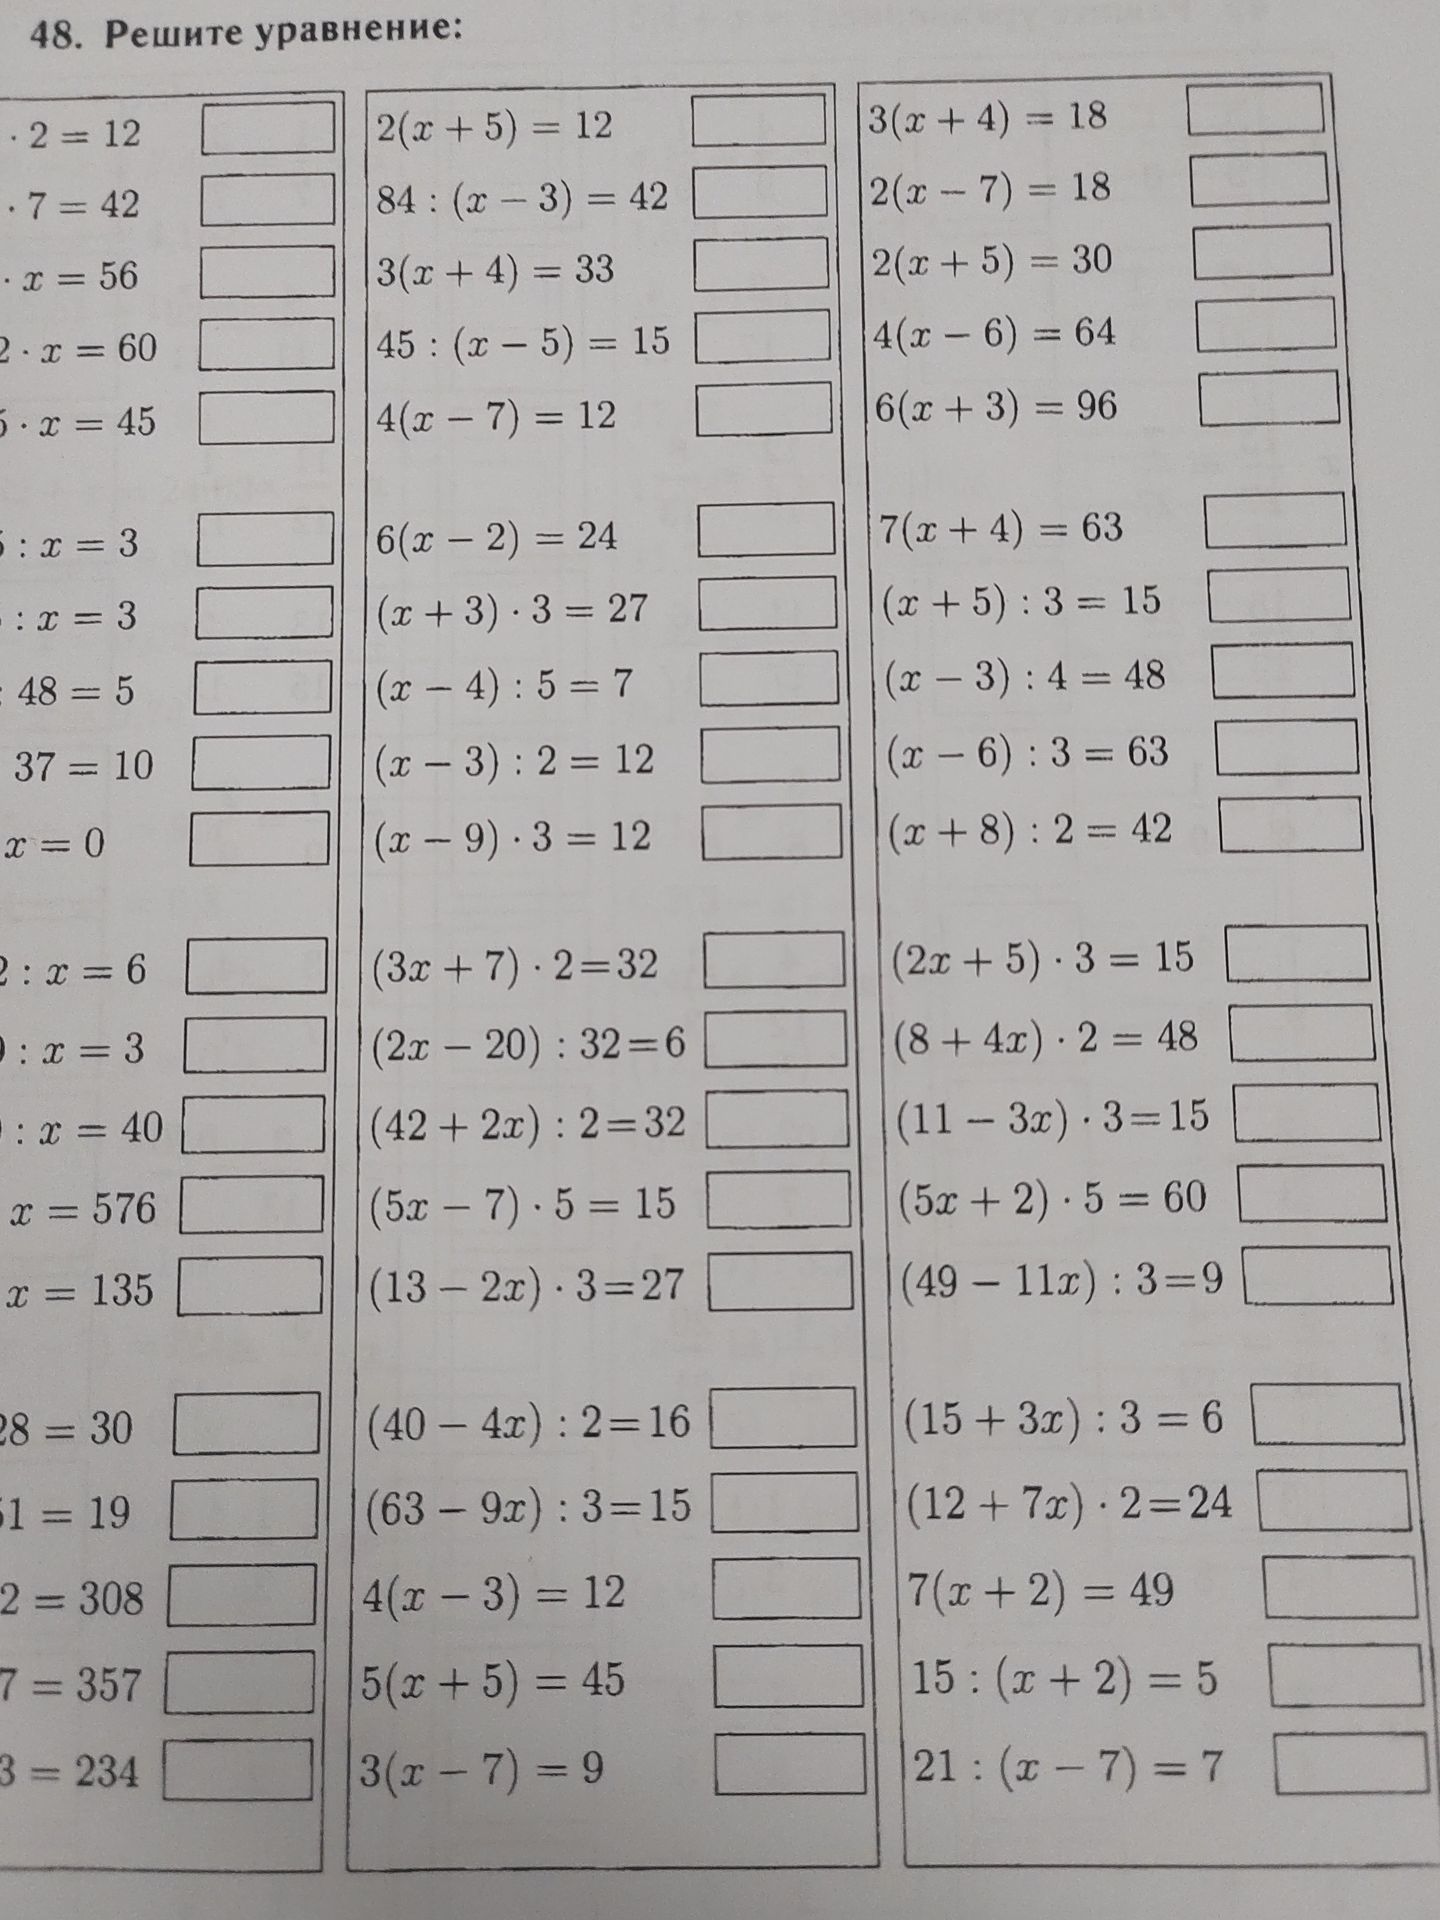 48. Решите уравнение:
· 2 = 12
· 7 = 42
· x = 56
2 · x = 60
5 · x = 45
: x = 3
: x = 3
: 48 = 5
37 = 10
x = 0
2 : x = 6
: x = 3
: x = 40
x = 576
x = 135
28 = 30
51 = 19
2 = 308
7 = 357
3 = 234
2(x + 5) = 12
84 : (x − 3) = 42
3(x + 4) = 33
45 : (x − 5) = 15
4(x − 7) = 12
6(x − 2) = 24
(x + 3) · 3 = 27
(x − 4) : 5 = 7
(x − 3) : 2 = 12
(x − 9) · 3 = 12
(3x + 7) · 2=32
(2x − 20) : 32=6
(42 + 2x) : 2=32
(5x − 7) · 5 = 15
(13 − 2x) · 3=27
(40 − 4x) : 2=16
(63 − 9x) : 3=15
4(x − 3) = 12
5(x + 5) = 45
3(x − 7) = 9
3(x + 4) = 18
2(x − 7) = 18
2(x + 5) = 30
4(x − 6) = 64
6(x + 3) = 96
7(x + 4) = 63
(x + 5) : 3 = 15
(x − 3) : 4 = 48
(x − 6) : 3 = 63
(x + 8) : 2 = 42
(2x + 5) · 3 = 15
(8 + 4x) · 2 = 48
(11 − 3x) · 3=15
(5x + 2) · 5 = 60
(49 − 11x) : 3=9
(15 + 3x) : 3 = 6
(12 + 7x) · 2=24
7(x + 2) = 49
15 : (x + 2) = 5
21 : (x − 7) = 7